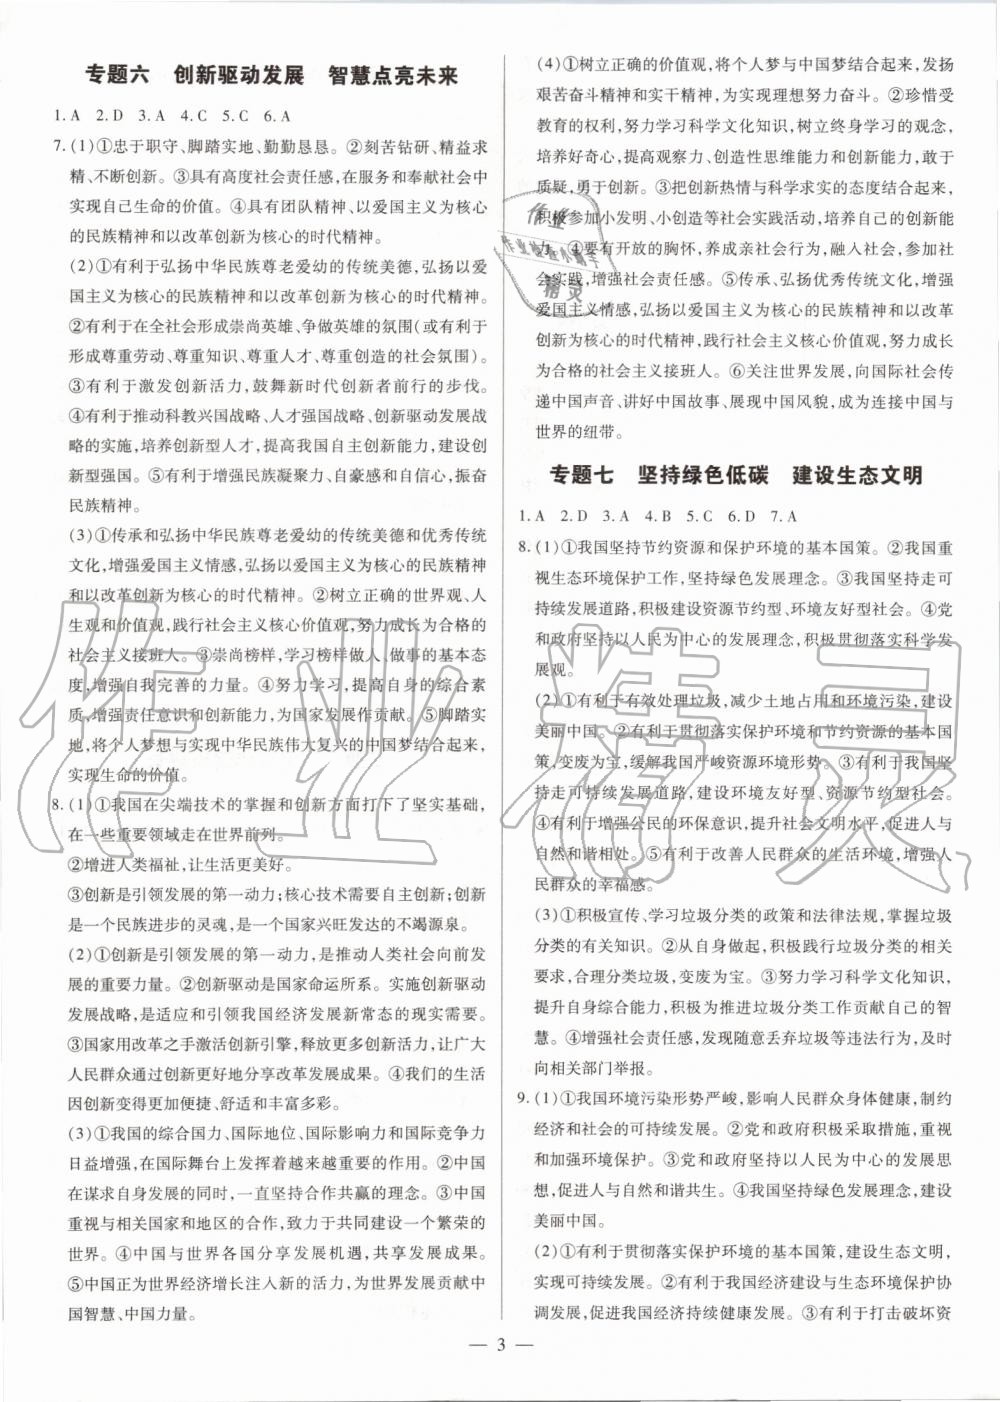 专题六 创新驱动发展 智慧点亮未来
1. A 2. D 3. A 4. C 5. C 6. A
7. (1)①忠于职守、脚踏实地、勤勤恳恳。②刻苦钻研、精益求
精、不断创新。③具有高度社会责任感,在服务和奉献社会中
实现自己生命的价值。④具有团队精神、以爱国主义为核心
的民族精神和以改革创新为核心的时代精神。
(2)①有利于弘扬中华民族尊老爱幼的传统美德,弘扬以爱
国主义为核心的民族精神和以改革创新为核心的时代精神。
②有利于在全社会形成崇尚英雄、争做英雄的氛围(或有利于
形成尊重劳动、尊重知识、尊重人才、尊重创造的社会氛围)。
③有利于激发创新活力,鼓舞新时代创新者前行的步伐。
④有利于推动科教兴国战略、人才强国战略、创新驱动发展战
略的实施,培养创新型人才,提高我国自主创新能力,建设创
新型强国。⑤有利于增强民族凝聚力、自豪感和自信心,振奋
民族精神。
(3)①传承和弘扬中华民族尊老爱幼的传统美德和优秀传统
文化,增强爱国主义情感,弘扬以爱国主义为核心的民族精神
和以改革创新为核心的时代精神。②树立正确的世界观、人
生观和价值观,践行社会主义核心价值观,努力成长为合格的
社会主义接班人。③崇尚榜样,学习榜样做人、做事的基本态
度,增强自我完善的力量。④努力学习,提高自身的综合素
质,增强责任意识和创新能力,为国家发展作贡献。⑤脚踏实
地,将个人梦想与实现中华民族伟大复兴的中国梦结合起来,
实现生命的价值。
8. (1)①我国在尖端技术的掌握和创新方面打下了坚实基础,
在一些重要领域走在世界前列。
②增进人类福祉,让生活更美好。
③创新是引领发展的第一动力;核心技术需要自主创新;创新
是一个民族进步的灵魂,是一个国家兴旺发达的不竭源泉。
(2)①创新是引领发展的第一动力,是推动人类社会向前发
展的重要力量。②创新驱动是国家命运所系。实施创新驱动
发展战略,是适应和引领我国经济发展新常态的现实需要。
③国家用改革之手激活创新引擎,释放更多创新活力,让广大
人民群众创新更好地分享改革发展成果。④我们的生活
因创新变得更加便捷、舒适和丰富多彩。
(3)①我国的综合国力、国际地位、国际影响力和国际竞争力
日益增强,在国际舞台上发挥着越来越重要的作用。②中国
在谋求自身发展的同时,一直坚持合作共赢的理念。③中国
重视与相关国家和地区的合作,致力于共同建设一个繁荣的
世界。④中国与世界各国分享发展机遇,共享发展成果。
⑤中国正为世界经济增长注入新的活力,为世界发展贡献中
国智慧、中国力量。
(4)①树立正确的价值观,将个人梦与中国梦结合起来,发扬
艰苦奋斗精神和实干精神,为实现理想努力奋斗。②珍惜受
教育的权利,努力学习科学文化知识,树立终身学习的观念,
培养好奇心,提高观察力、创造性思维能力和创新能力,敢于
质疑,勇于创新。③把创新热情与科学求实的态度结合起来,
积极参加小发明、小创造等社会实践活动,培养自己的创新能
力。④要有开放的胸怀,养成亲社会行为,融入社会,参加社会
实践,增强社会责任感。⑤传承、弘扬优秀传统文化,增强
爱国主义情感,弘扬以爱国主义为核心的民族精神和以改革
创新为核心的时代精神,践行社会主义核心价值观,努力成长
为合格的社会主义接班人。⑥关注世界发展,向国际社会传
递中国声音、讲好中国故事、展现中国风貌,成为连接中国与
世界的纽带。
专题七 坚持绿色低碳 建设生态文明
1. A 2. D 3. A 4. B 5. C 6. D 7. A
8. (1)①我国坚持节约资源和保护环境的基本国策。②我国重
视生态环境保护工作,坚持绿色发展理念。③我国坚持走可
持续发展道路,积极建设资源节约型、环境友好型社会。④党
和政府坚持以人民为中心的发展理念,积极贯彻落实科学发
展观。
(2)①有利于有效处理垃圾,减少土地占用和环境污染,建设
美丽中国。②有利于贯彻落实保护环境和节约资源的基本国
策,变废为宝,缓解我国严峻资源环境形势。③有利于我国坚
持走可持续发展道路,建设环境友好型、资源节约型社会。
④有利于增强公民的环保意识,提升社会文明水平,促进人与
自然和谐相处。⑤有利于改善人民群众的生活环境,增强人
民群众的幸福感。
(3)①积极宣传、学习垃圾分类的政策和法律法规,掌握垃圾
分类的有关知识。②从自身做起,积极践行垃圾分类的相关
要求,合理分类垃圾,变废为宝。③努力学习科学文化知识,
提升自身综合能力,积极为推进垃圾分类工作贡献自己的智
慧。④增强社会责任感,发现随意丢弃垃圾等违法行为,及时
向相关部门举报。
9. (1)①我国环境污染形势严峻,影响人民群众身体健康,制约
经济和社会的可持续发展。②党和政府积极采取措施,重视
和加强环境保护。③党和政府坚持以人民为中心的发展思
想,促进人与自然和谐共生。④我国坚持绿色发展理念,建设
美丽中国。
(2)①有利于贯彻落实保护环境的基本国策,建设生态文明,
实现可持续发展。②有利于我国经济建设与生态环境保护协
调发展,促进我国经济持续健康发展。③有利于打击破坏资
— 3 —
作业精灵